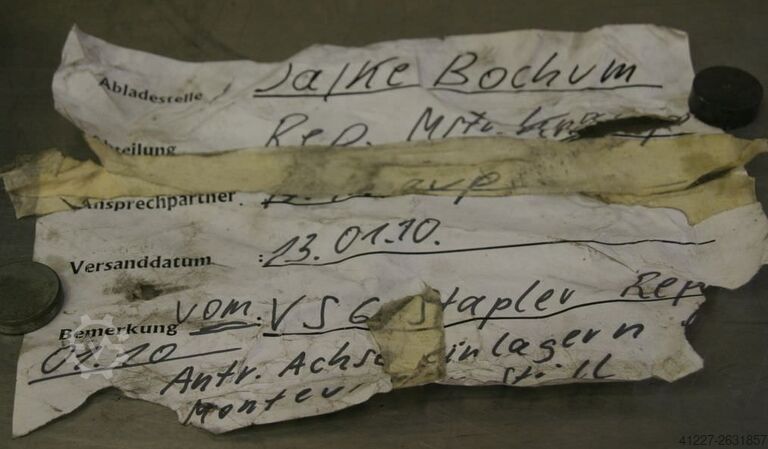 Abladestelle Jafke Bochum
Abteilung Rep. Mstr.
Ansprechpartner
Versanddatum : 13.01.10.
Bemerkung vom. VSG Stapler Rep
01.10
Antr. Achse einlagern
Monteu Still
41227-2631857